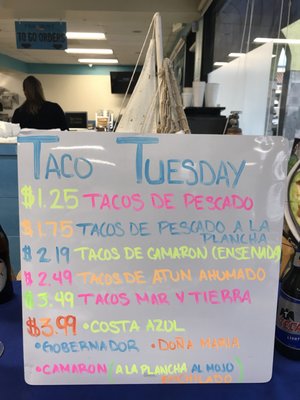 TO GO ORDERS
TACO TUESDAY
$1.25 TACOS DE PESCADO
$1.75 TACOS DE PESCADO A LA
PLANCHA
$2.19 TACOS DE CAMARON (ENSENADA
$2.49 TACOS DE ATUN AHUMADO
$3.99 TACOS MAR Y TIERRA
$3.99 • COSTA AZUL
• GOBERNADOR • DOÑA MARIA
• CAMARON (A LA PLANCHA AL MOJO